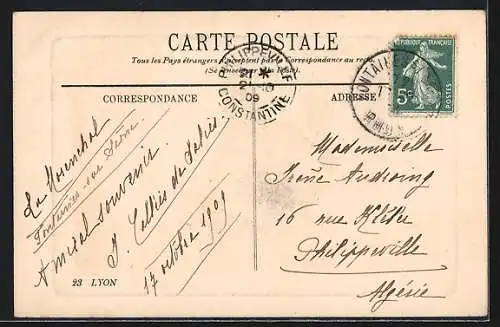 CARTE POSTALE
Tous les Pays étrangers n'acceptent pas la Correspondance au recto
(Se renseigner à la Poste).
CORRESPONDANCE
ADRESSE
PHILIPPEVILLE
21 * 
09
CONSTANTINE
RÉPUBLIQUE FRANÇAISE
5c
POSTES
FONTAINES
Mademoiselle
Irène
16 rue
Philippeville
Algérie
La
Fontaines sur Saône
Amical souvenir
J.
17 octobre 1909
23 LYON